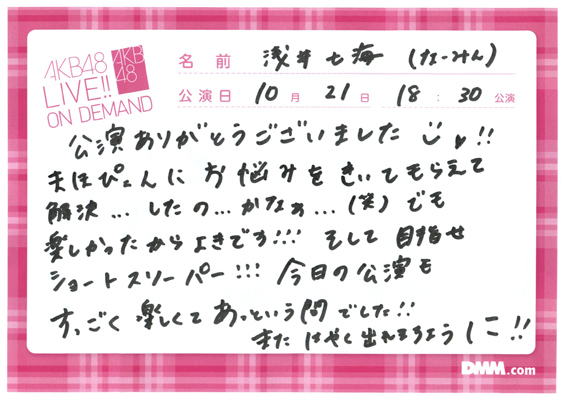 AKB48
LIVE!!
ON DEMAND
AKB
48
名前 浅井七海 (なーみん)
公演日 10月 21日 18:30公演
公演ありがとうございました !!
まほぴょんに お悩みをきいてもらえて
解決...したの...かなぁ...(笑) でも
楽しかったからよきです!!! そして 目指せ
ショートスリーパー!!! 今日の公演も
すっごく 楽しくて あっという間でした!!
また はやく出れますように!!
DMM.com